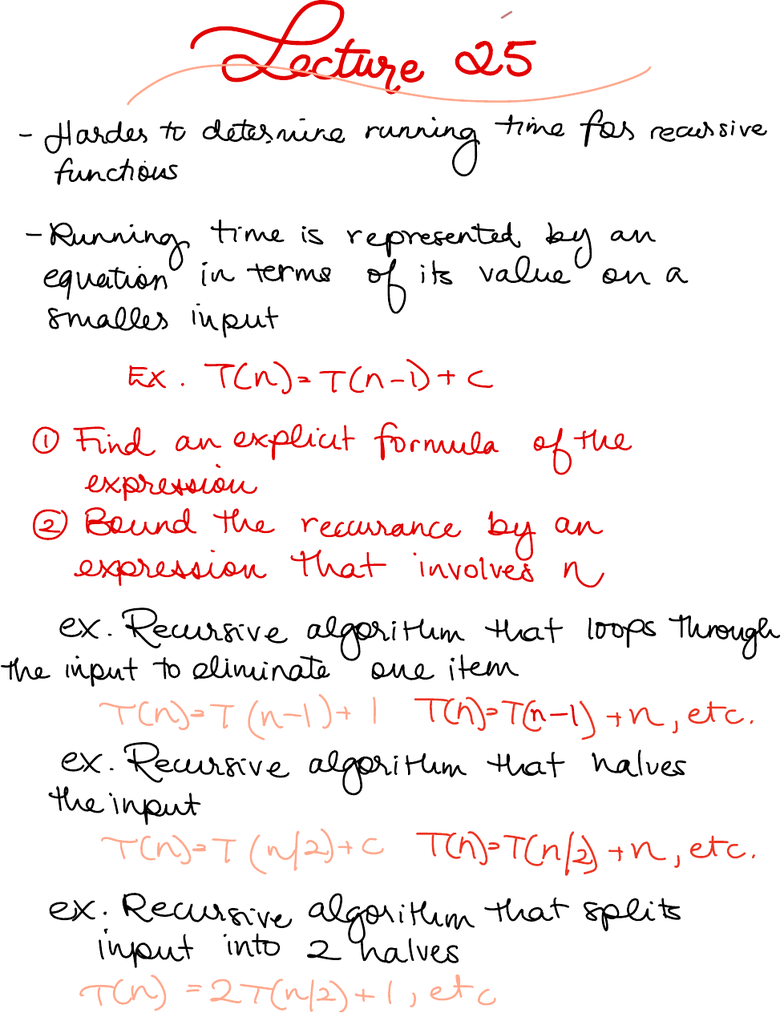 Lecture 25
- Harder to determine running time for recursive
functions
- Running time is represented by an
equation in terms of its value on a
smaller input
Ex. T(n) = T(n-1) + c
① Find an explicit formula of the
expression
② Bound the recurance by an
expression that involves n
ex. Recursive algorithm that loops through
the input to eliminate one item
T(n) = T(n-1) + 1 T(n) = T(n-1) + n, etc.
ex. Recursive algorithm that halves
the input
T(n) = T(n/2) + c T(n) = T(n/2) + n, etc.
ex. Recursive algorithm that splits
input into 2 halves
T(n) = 2T(n/2) + 1, etc